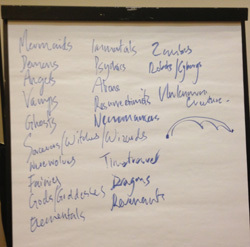 Mermaids
Demons
Angels
Vamps
Ghosts
Sorcerers/Witches/Wizards
Werewolves
Fairies
Gods/Goddesses
Elementals
Immortals
Psychics
Necromancers
Time travel
Dragons
Revenants
Zombies
Robots/Cyborgs
Unknown
Creature